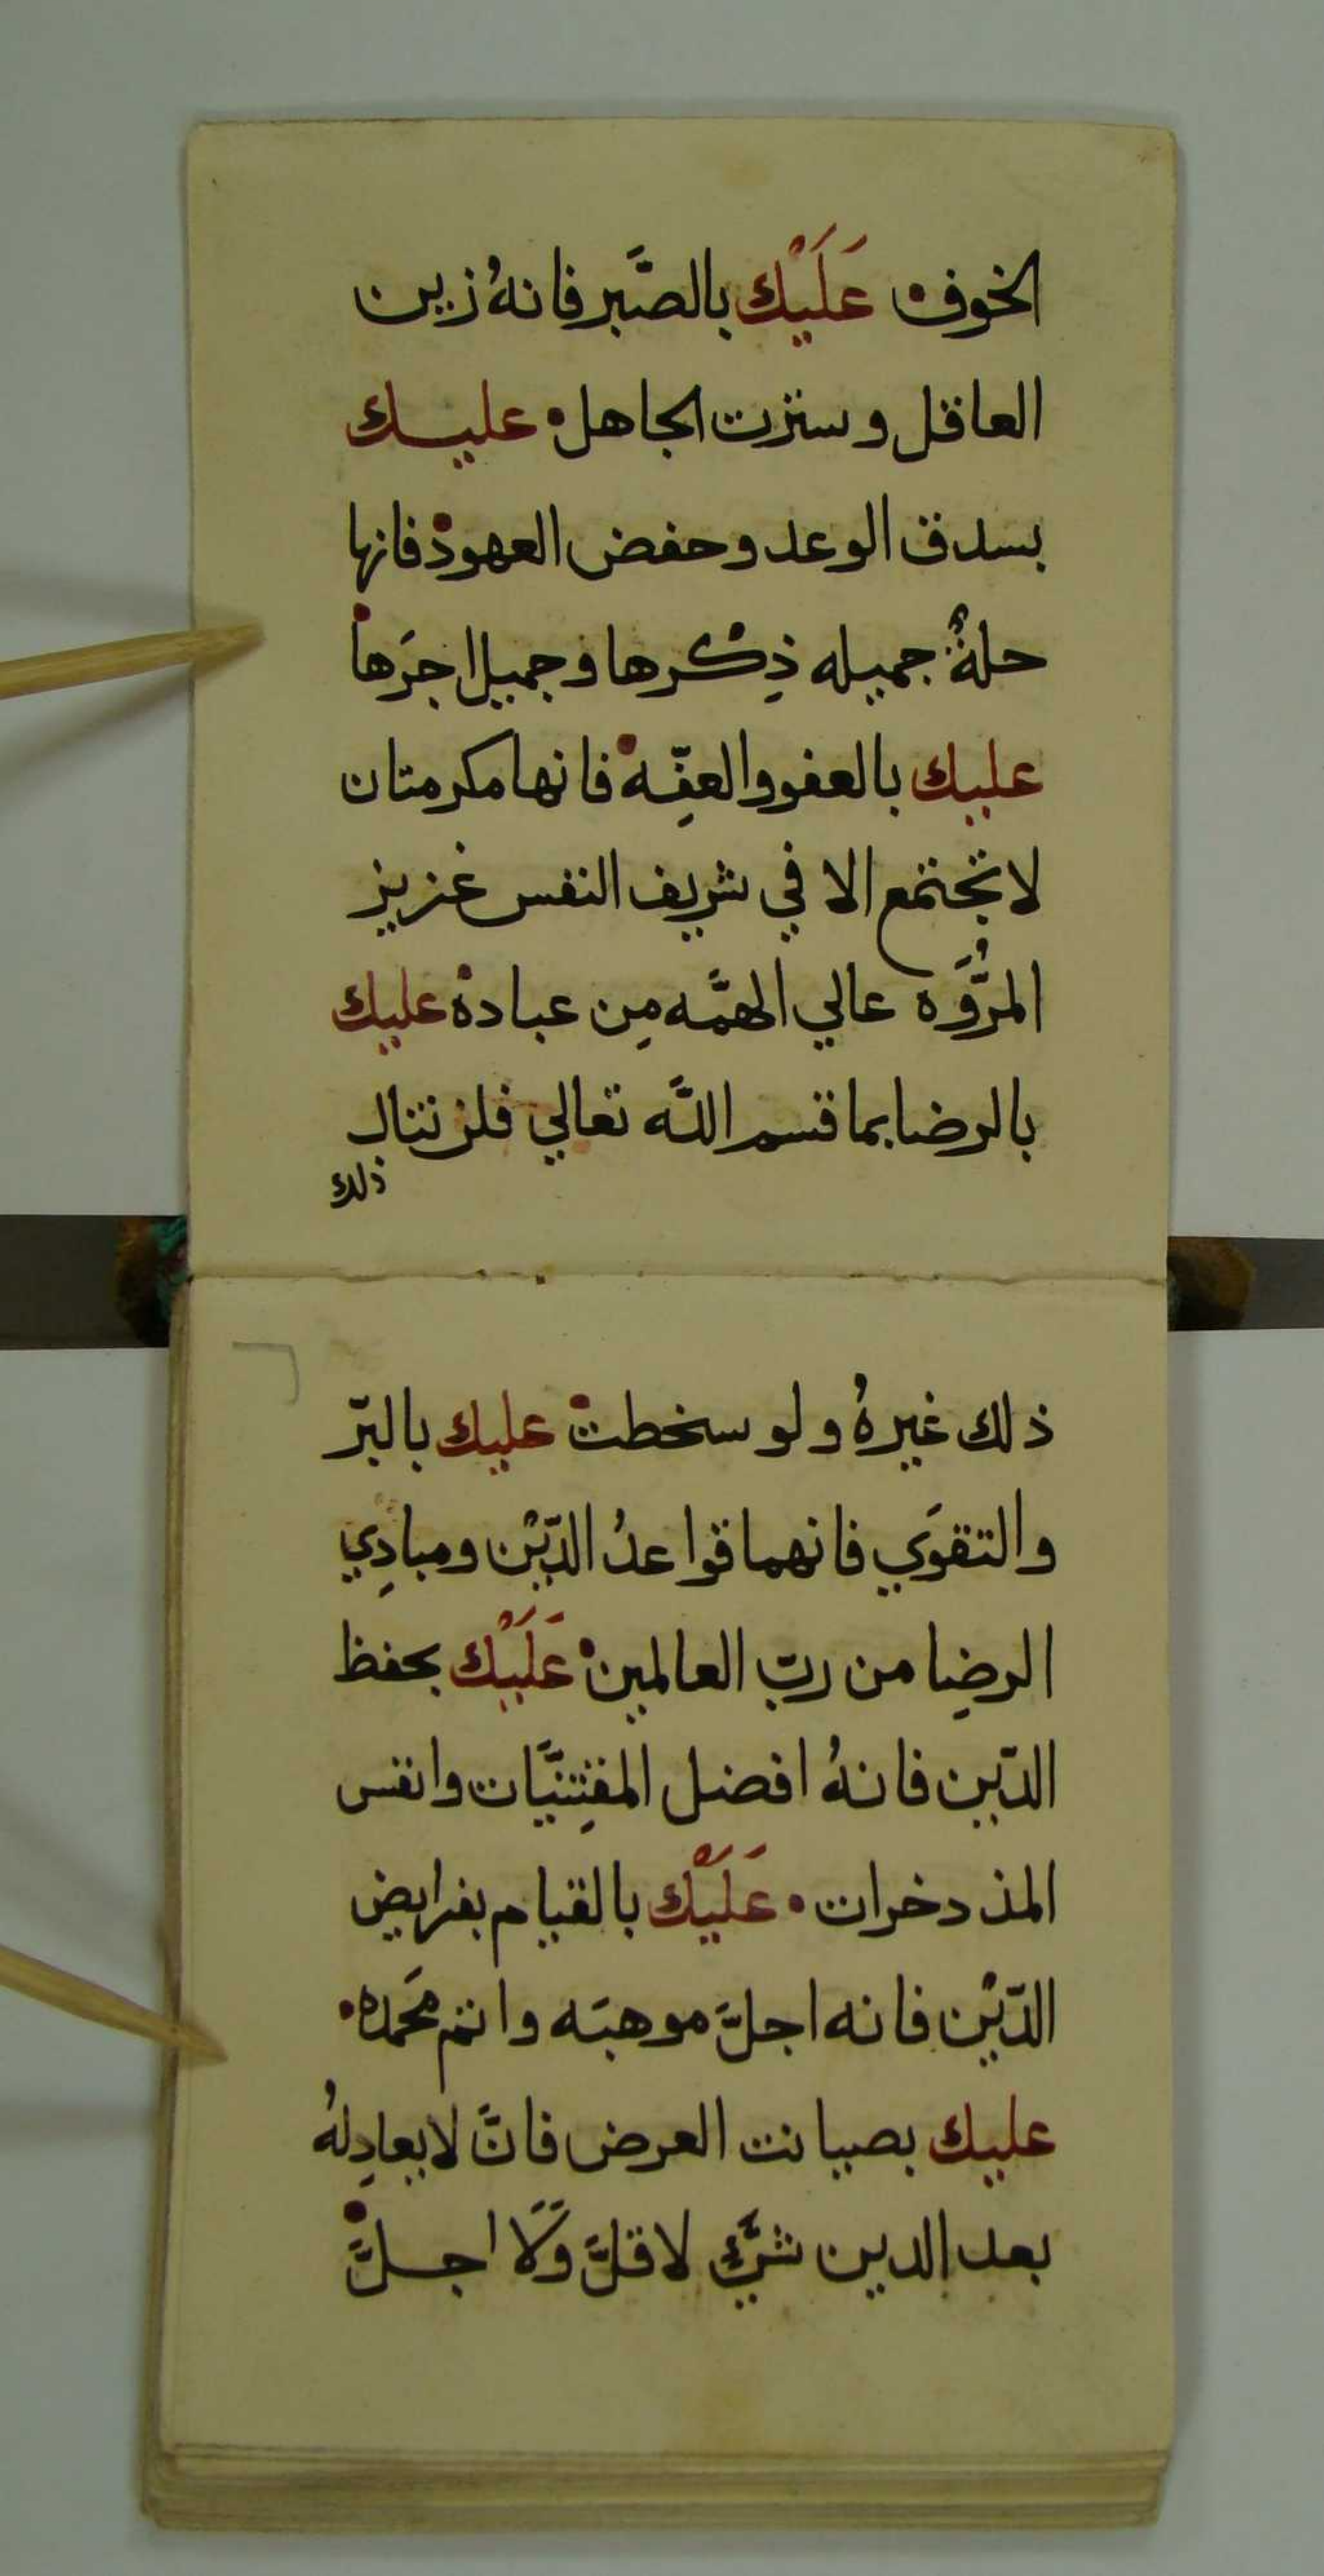 الخوف عَلَيْك بالصَّبر فانهُ زين
العاقل وسترت الجاهل عليك
بسدق الوعد وحفض العهود فانها
حلةٌ جميله ذِكرها وجميل اجرَها
عليك بالعفو والعفِّه فانها مكرمتان
لا تجتمع الا في شريف النفس غزيز
المرُّوَه عالي الهمَّه مِن عباده عليك
بالرضا بما قسم اللَّه تعالي فلن تنال
ذلك
ذلك غيرهُ ولو سخطت عليك بالبرّ
والتقوَي فانهما قواعدُ الدّيْن ومبادِي
الرضِا من ربّ العالمين عَلَيْك بحفظ
الدّين فانهُ افضل المقِتنيَّات وانفس
المذدخرات عَلَيْك بالقيام بفرايض
الدّيْن فانه اجلَّ موهبَه واتم محَمده
عليك بصيانت العرض فانَّ لا يعادِلهُ
بعد الدين شيٌ لا قلَّ وَلَا اجلَّ